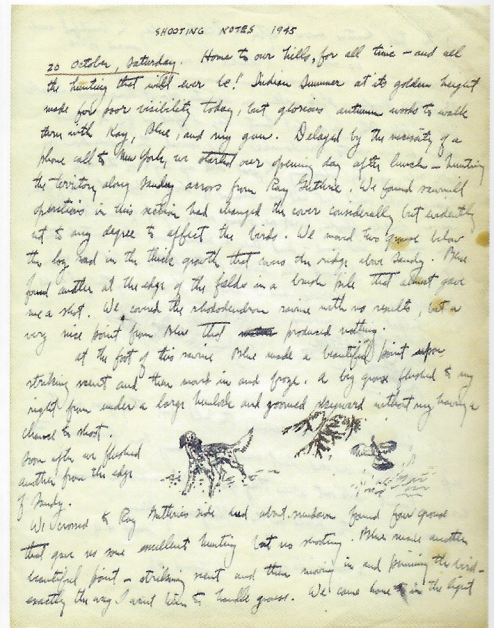 SHOOTING NOTES 1945
20 October, Saturday. Home to our hills, for all time — and all
the hunting that will ever be! Indian Summer at its golden height
make for poor visibility today, but glorious autumn woods to walk
thru with Kay, Blue, and my gun. Delayed by the necessity of a
phone call to New York, we started our opening day after lunch — hunting
the territory along Sandy across from Ray Guthrie. We found sawmill
operations in this section had changed the cover considerably but evidently
not to any degree to affect the birds. We moved two grouse below
the log road in the thick growth that was the ridge above Sandy. Blue
found another at the edge of the fields in a brush pile that almost gave
me a shot. We covered the rhododendron ravine with no results, but a
very nice point from Blue that produced nothing.
at the foot of this ravine Blue made a beautiful point upon
striking scent and then snuck in and froze. A big grouse flushed to my
right from under a large hemlock and zoomed skyward without my having a
chance to shoot.
Soon after we flushed
another from the edge
of Sandy.
We crossed to Ray Guthrie's side and about sundown found four grouse
that gave us some excellent hunting but no shooting. Blue made another
beautiful point — striking scent and then moving in and pinning the bird —
exactly the way I want him to handle grouse. We came home in the light